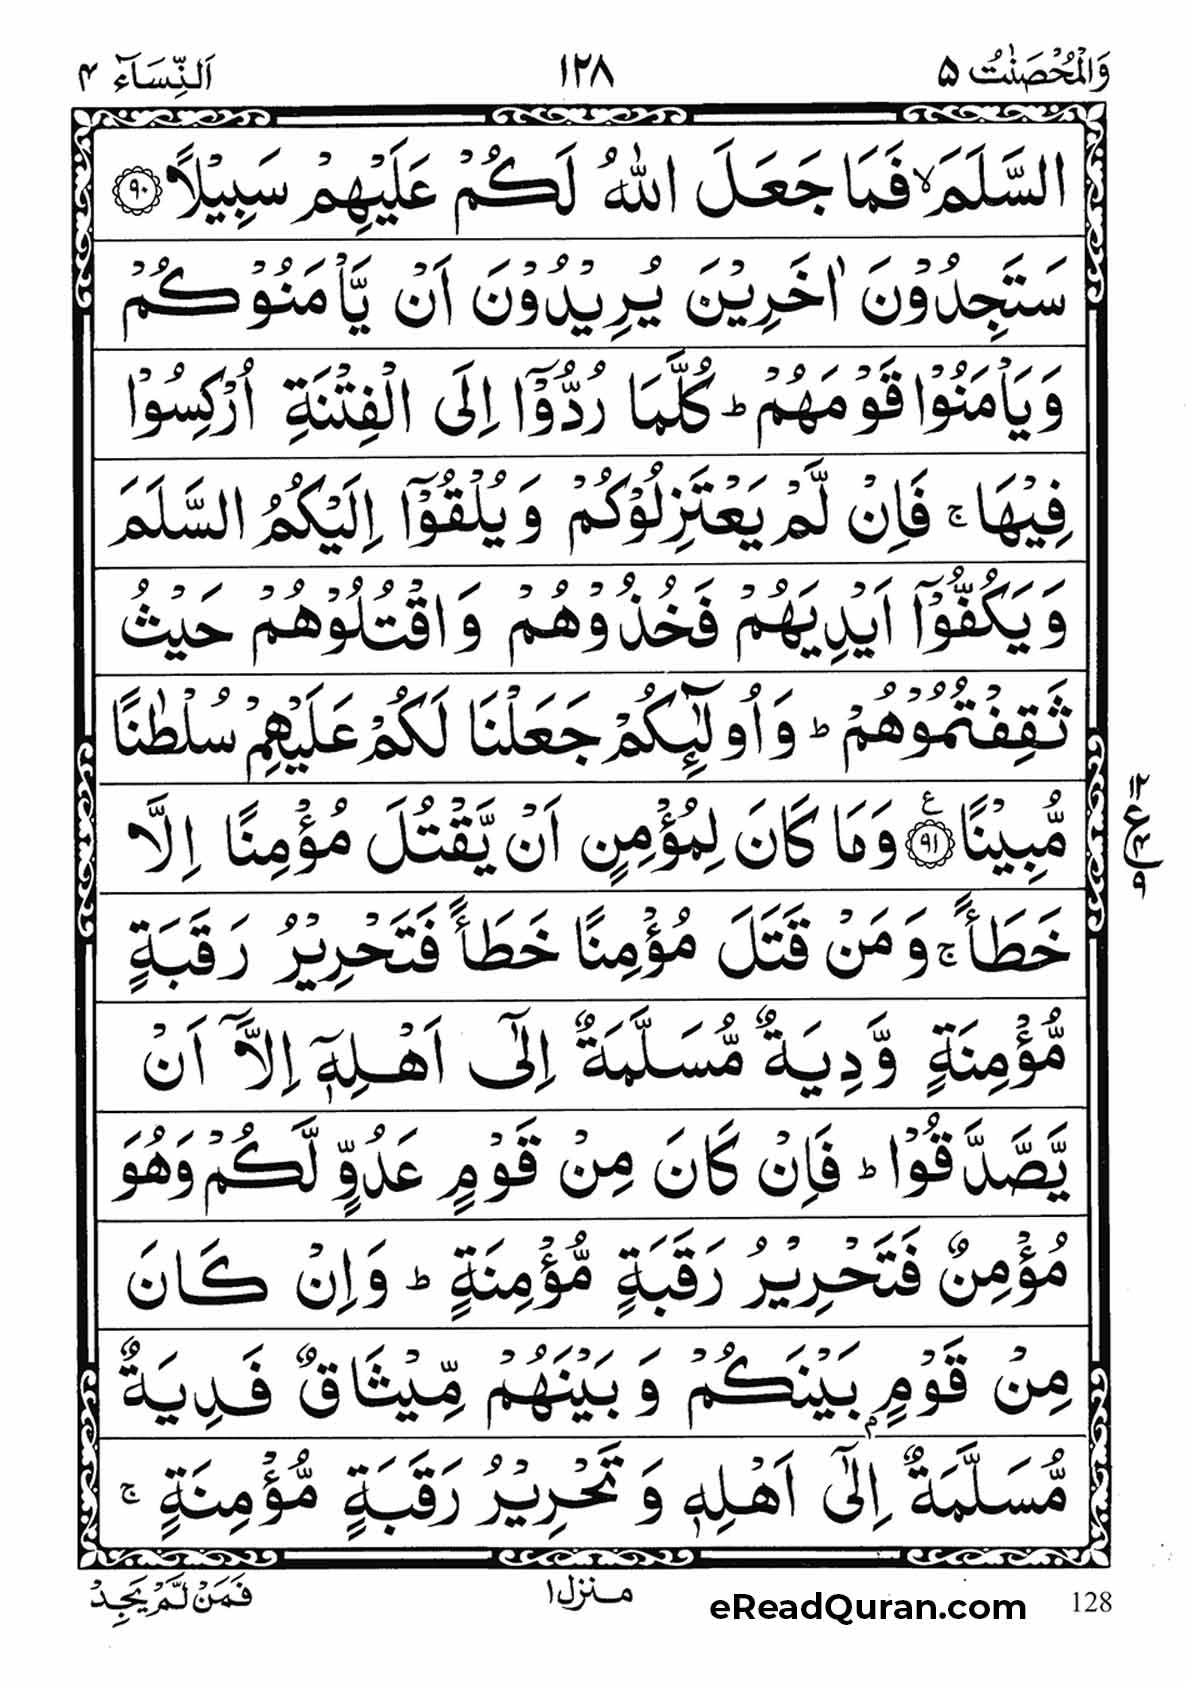 وَالْمُحْصَنٰتُ ۵ ۱۲۸ اَلنِّسَآء ۴
السَّلَمَ ۙ فَمَا جَعَلَ اللّٰهُ لَكُمْ عَلَيْهِمْ سَبِيْلًا ۹۰
سَتَجِدُوْنَ اٰخَرِيْنَ يُرِيْدُوْنَ اَنْ يَّاْمَنُوْكُمْ
وَيَاْمَنُوْا قَوْمَهُمْ ؕ كُلَّمَا رُدُّوْۤا اِلَى الْفِتْنَةِ اُرْكِسُوْا
فِيْهَا ۚ فَاِنْ لَّمْ يَعْتَزِلُوْكُمْ وَيُلْقُوْۤا اِلَيْكُمُ السَّلَمَ
وَيَكُفُّوْۤا اَيْدِيَهُمْ فَخُذُوْهُمْ وَاقْتُلُوْهُمْ حَيْثُ
ثَقِفْتُمُوْهُمْ ؕ وَاُولٰٓئِكُمْ جَعَلْنَا لَكُمْ عَلَيْهِمْ سُلْطٰنًا
مُّبِيْنًا ۹۱ ع وَمَا كَانَ لِمُؤْمِنٍ اَنْ يَّقْتُلَ مُؤْمِنًا اِلَّا
خَطَـًٔا ۚ وَمَنْ قَتَلَ مُؤْمِنًا خَطَـًٔا فَتَحْرِيْرُ رَقَبَةٍ
مُّؤْمِنَةٍ وَّدِيَةٌ مُّسَلَّمَةٌ اِلٰۤى اَهْلِهٖۤ اِلَّاۤ اَنْ
يَّصَّدَّقُوْا ؕ فَاِنْ كَانَ مِنْ قَوْمٍ عَدُوٍّ لَّكُمْ وَهُوَ
مُؤْمِنٌ فَتَحْرِيْرُ رَقَبَةٍ مُّؤْمِنَةٍ ؕ وَاِنْ كَانَ
مِنْ قَوْمٍۭ بَيْنَكُمْ وَبَيْنَهُمْ مِّيْثَاقٌ فَدِيَةٌ
مُّسَلَّمَةٌ اِلٰۤى اَهْلِهٖ وَتَحْرِيْرُ رَقَبَةٍ مُّؤْمِنَةٍ ۚ
فَمَنْ لَّمْ يَجِدْ منزل ۱ eReadQuran.com 128